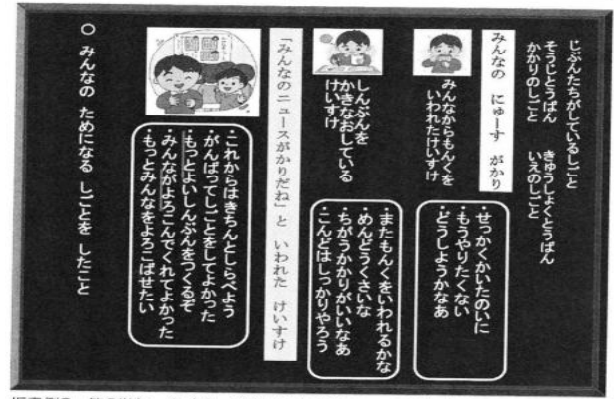 じぶんたちがしているしごと
そうじとうばん　きゅうしょくとうばん
かかりのしごと　いえのしごと
みんなの　にゅーす　がかり
みんなからもんくを
いわれたけいすけ
・せっかくかいたのに
・もうやりたくない
・どうしようかなあ
しんぶんを
かきなおしている
けいすけ
・またもんくをいわれるかな
・めんどうくさいな
・ちがうかかりがいいなあ
・こんどはしっかりやろう
「みんなのニュースがかりだね」と　いわれた　けいすけ
・これからはきちんとしらべよう
・がんばってしごとをしてよかった
・もっとよいしんぶんをつくるぞ
・みんながよろこんでくれてよかった
・もっとみんなをよろこばせたい
○　みんなの　ためになる　しごとを　したこと